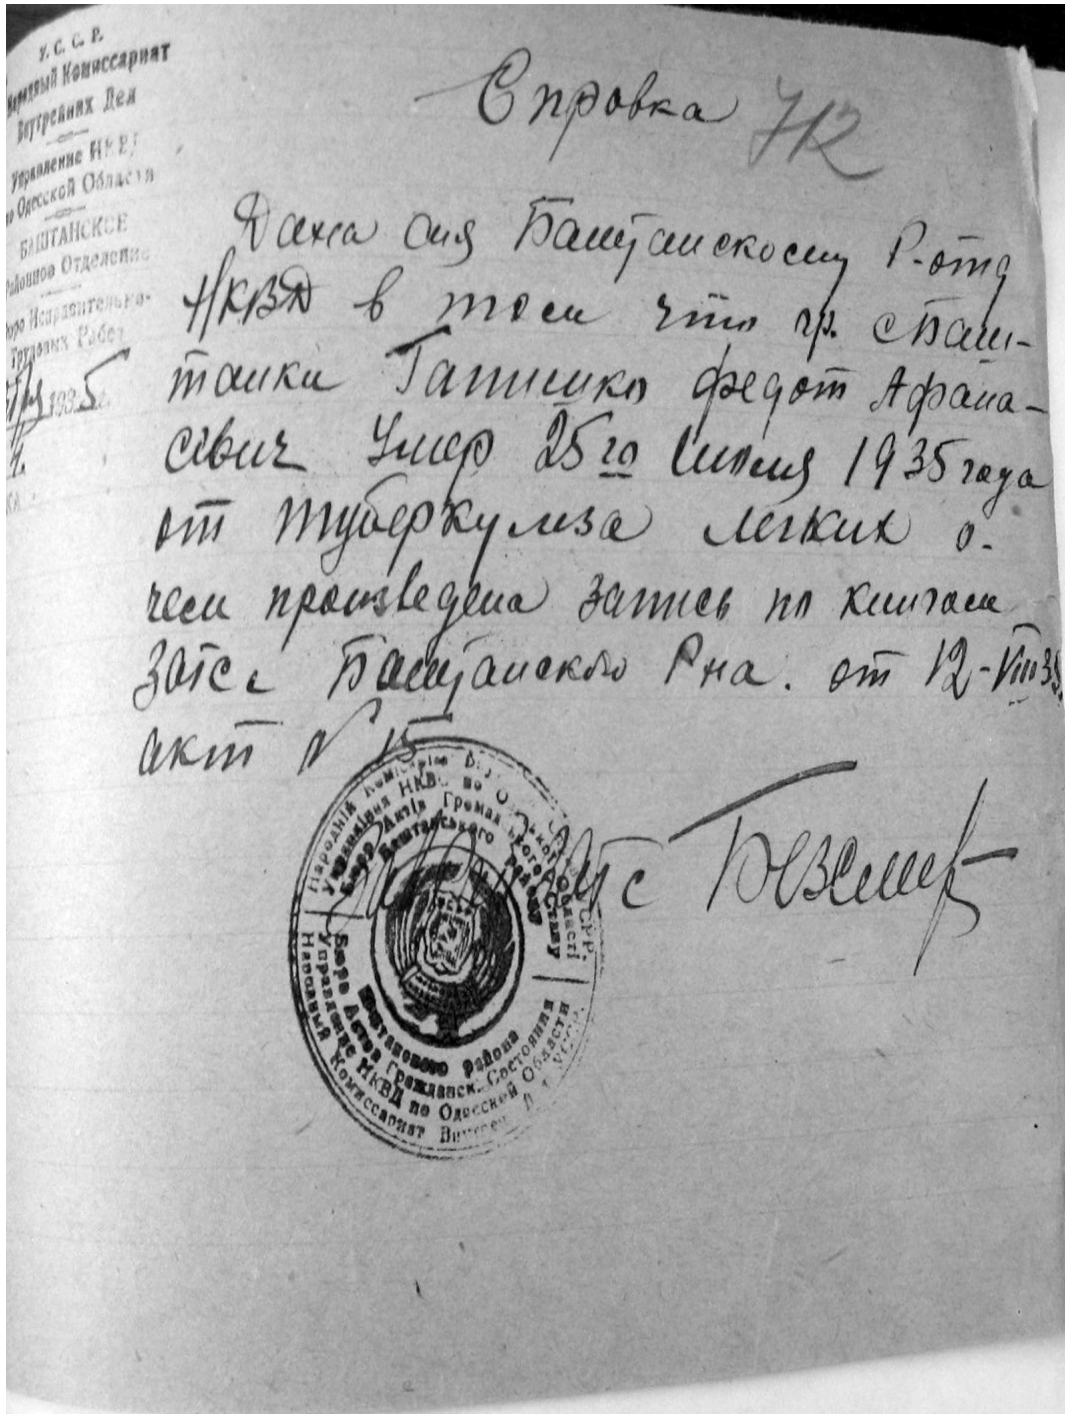 У. С. С. Р.
Народный Комиссариат
Внутренних Дел
Управление НКВД
по Одесской Области
БАШТАНСКОЕ
Районное Отделение
Бюро Исправительно-
Трудовых Работ
1935 г.
Справка 72
Дана сия Баштанскому Р-отд
НКВД в том что гр. с Баш-
танки Гапишко Федот Афана-
сівич Умер 25го Июля 1935 года
от туберкулеза легких о-
чем произведена запись по книгам
Загсе Баштанского Р на. от 12-VIII 35
акт № 15
Загс
Народній Комісаріат
Управління НКВС по Одеській Області
Бюро Актів Громадського Стану
Баштанського району
УСРР.
Баштанского района
Бюро Актов Гражданск. Состояния
Управление НКВД по Одесской Области
Народный Комиссариат Внутрен. Д УССР.